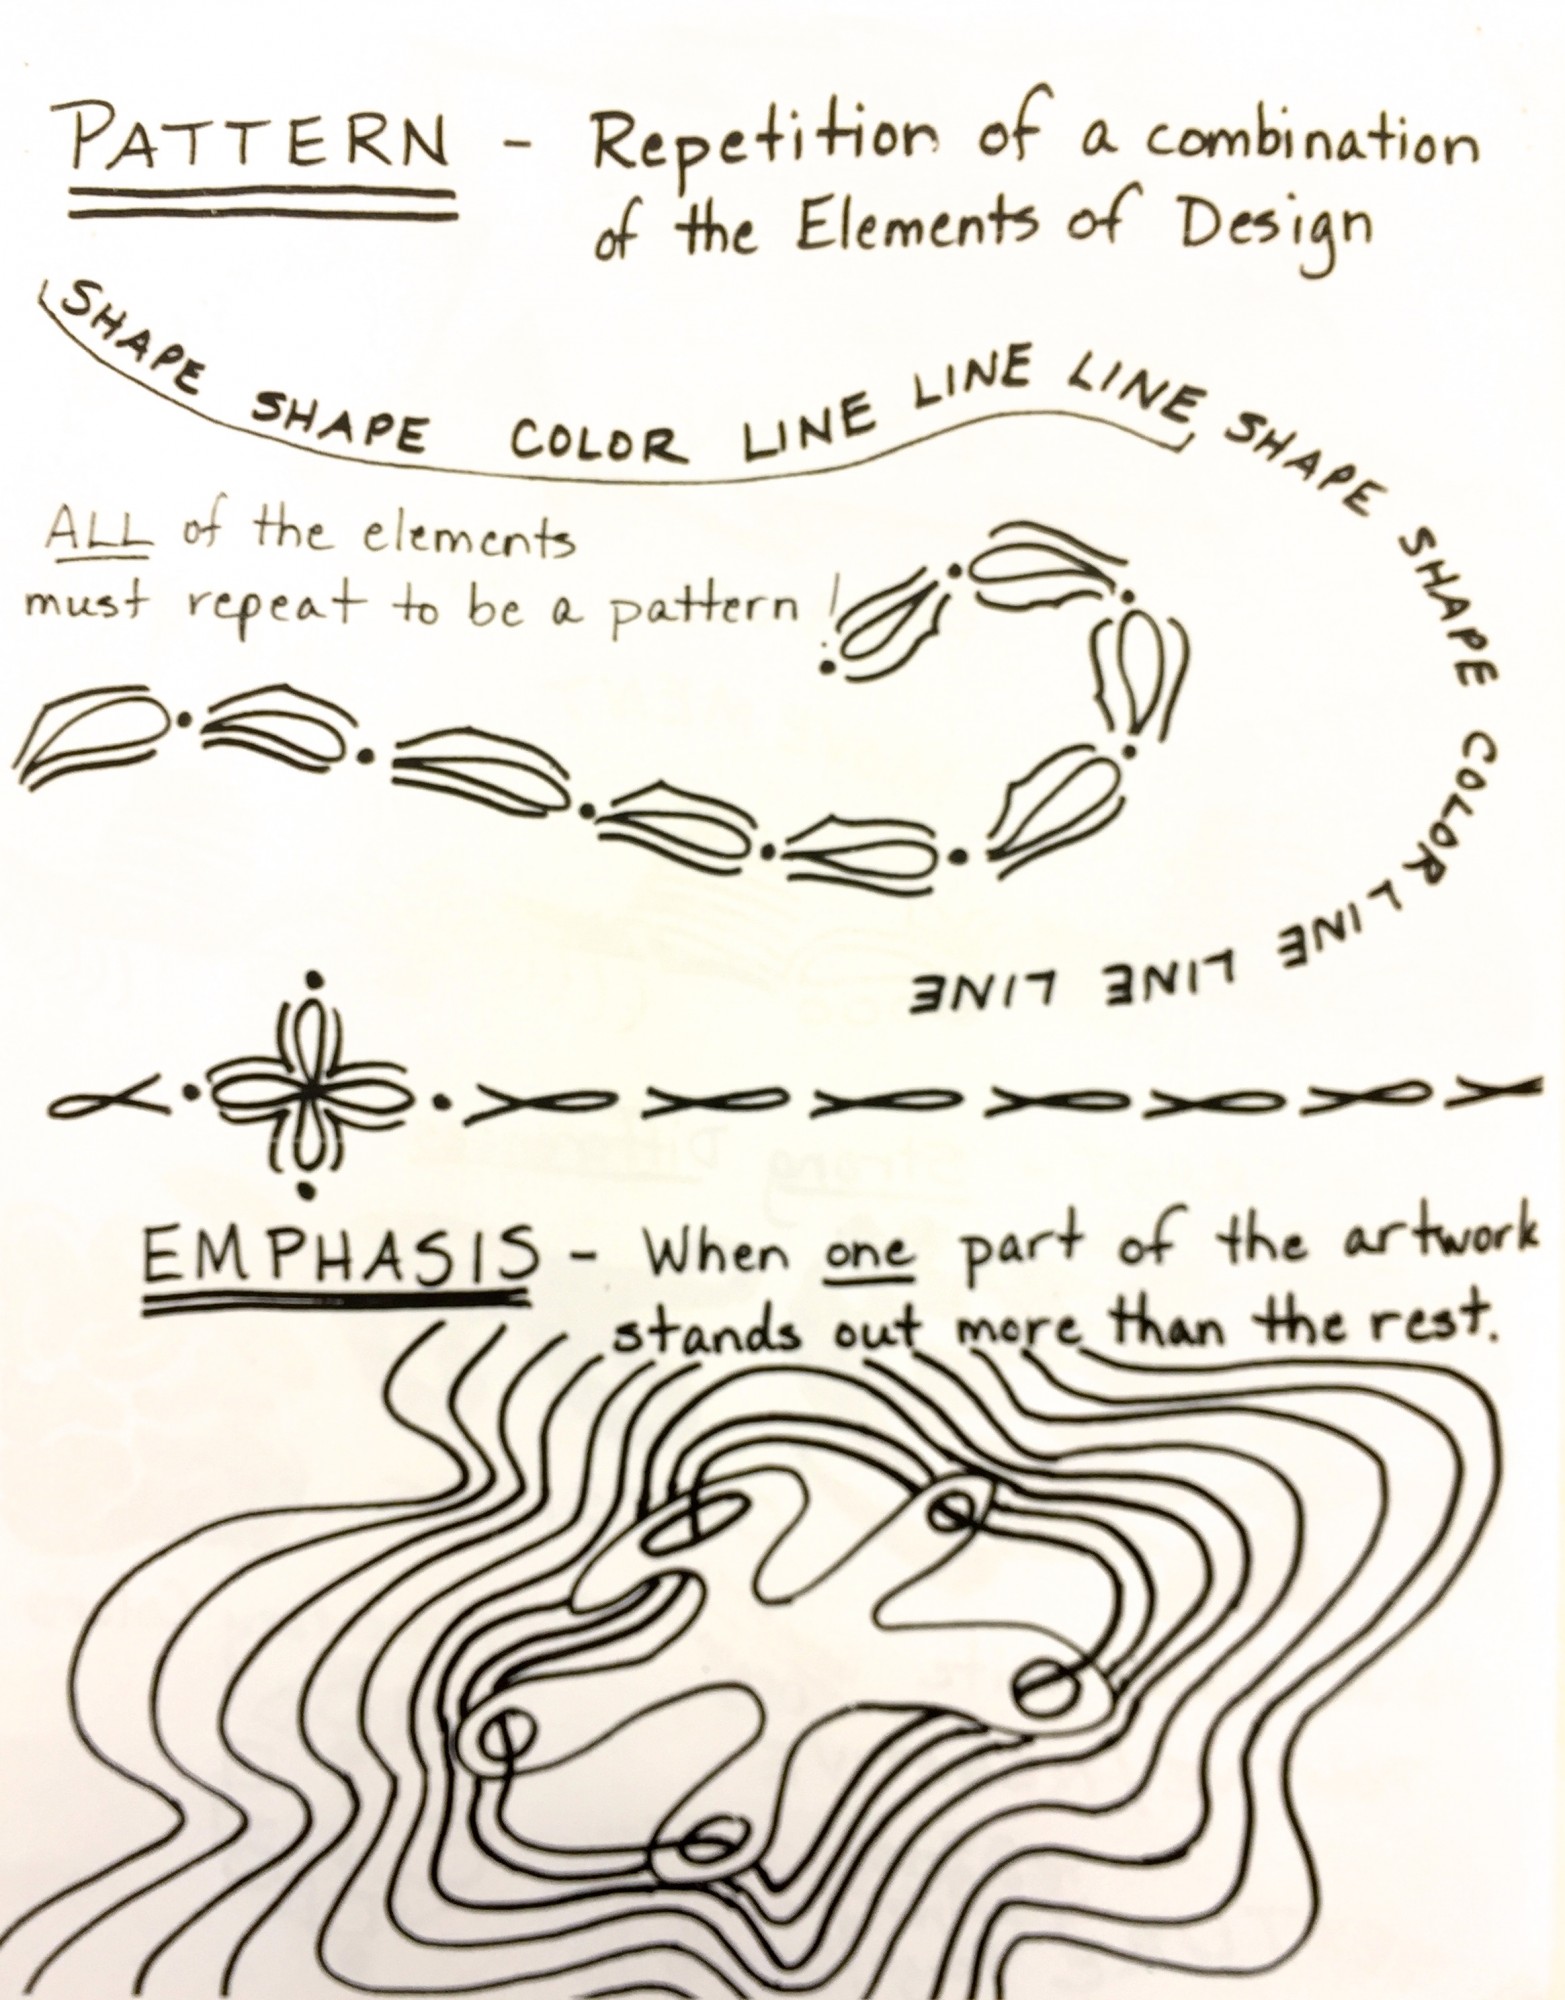 PATTERN - Repetition of a combination
of the Elements of Design
SHAPE SHAPE COLOR LINE LINE LINE SHAPE SHAPE COLOR LINE LINE LINE
ALL of the elements
must repeat to be a pattern!
EMPHASIS - When one part of the artwork
stands out more than the rest.